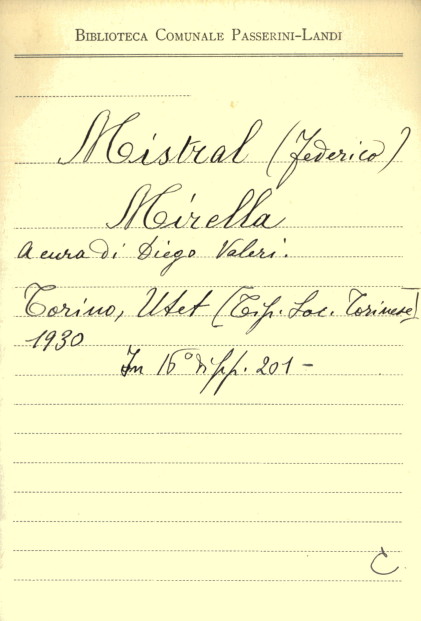 BIBLIOTECA COMUNALE PASSERINI-LANDI
Mistral (Federico)
Mirella
A cura di Diego Valeri.
Torino, Utet (Tip. Soc. Torinese)
1930
In 16° di pp. 201 -
C